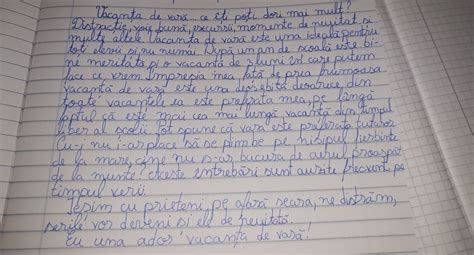 Vacanța de vară, ce îți poți dori mai mult?
Distracție, voie bună, excursii, momente de neuitat și
multe altele. Vacanța de vară este una ideală pentru
toți elevii și nu numai. După un an de școală este bi-
ne meritată și o vacanță de 3 luni în care putem
face ce vrem. Impresia mea față de prea frumoasa
vacanță de vară este una deosebită deoarece, din
toate vacanțele ea este preferata mea, pe lângă
faptul că este mai cea mai lungă vacanță din timpul
liber al școlii, pot spune că vara este preferata tuturor.
Cui nu i-ar place să se plimbe pe nisipul fierbinte
de la mare, cine nu s-ar bucura de aerul proaspăt
de la munte? Aceste întrebări sunt auzite frecvent, pe
timpul verii.
Ieșim cu prieteni, pe afară seara, ne distrăm,
serile vor deveni și ele de neuitată.
Eu una ador vacanța de vară!